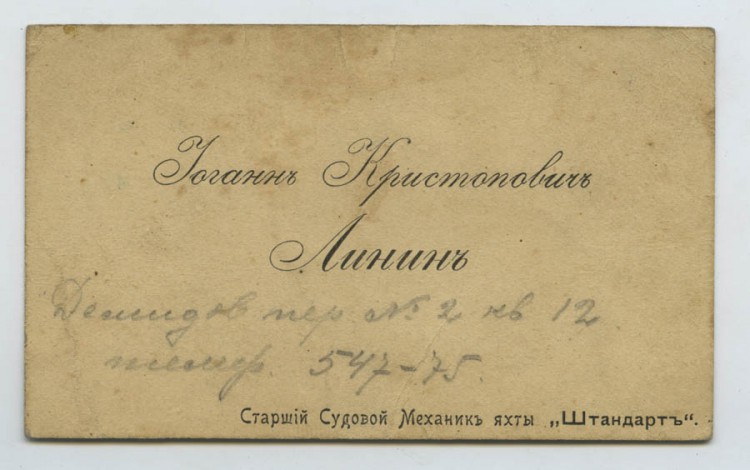 Іоганнъ Кристоповичъ
Лининъ
Демидов пер № 2 кв 12
телеф. 547-75.
Старшій Судовой Механикъ яхты „Штандартъ“.